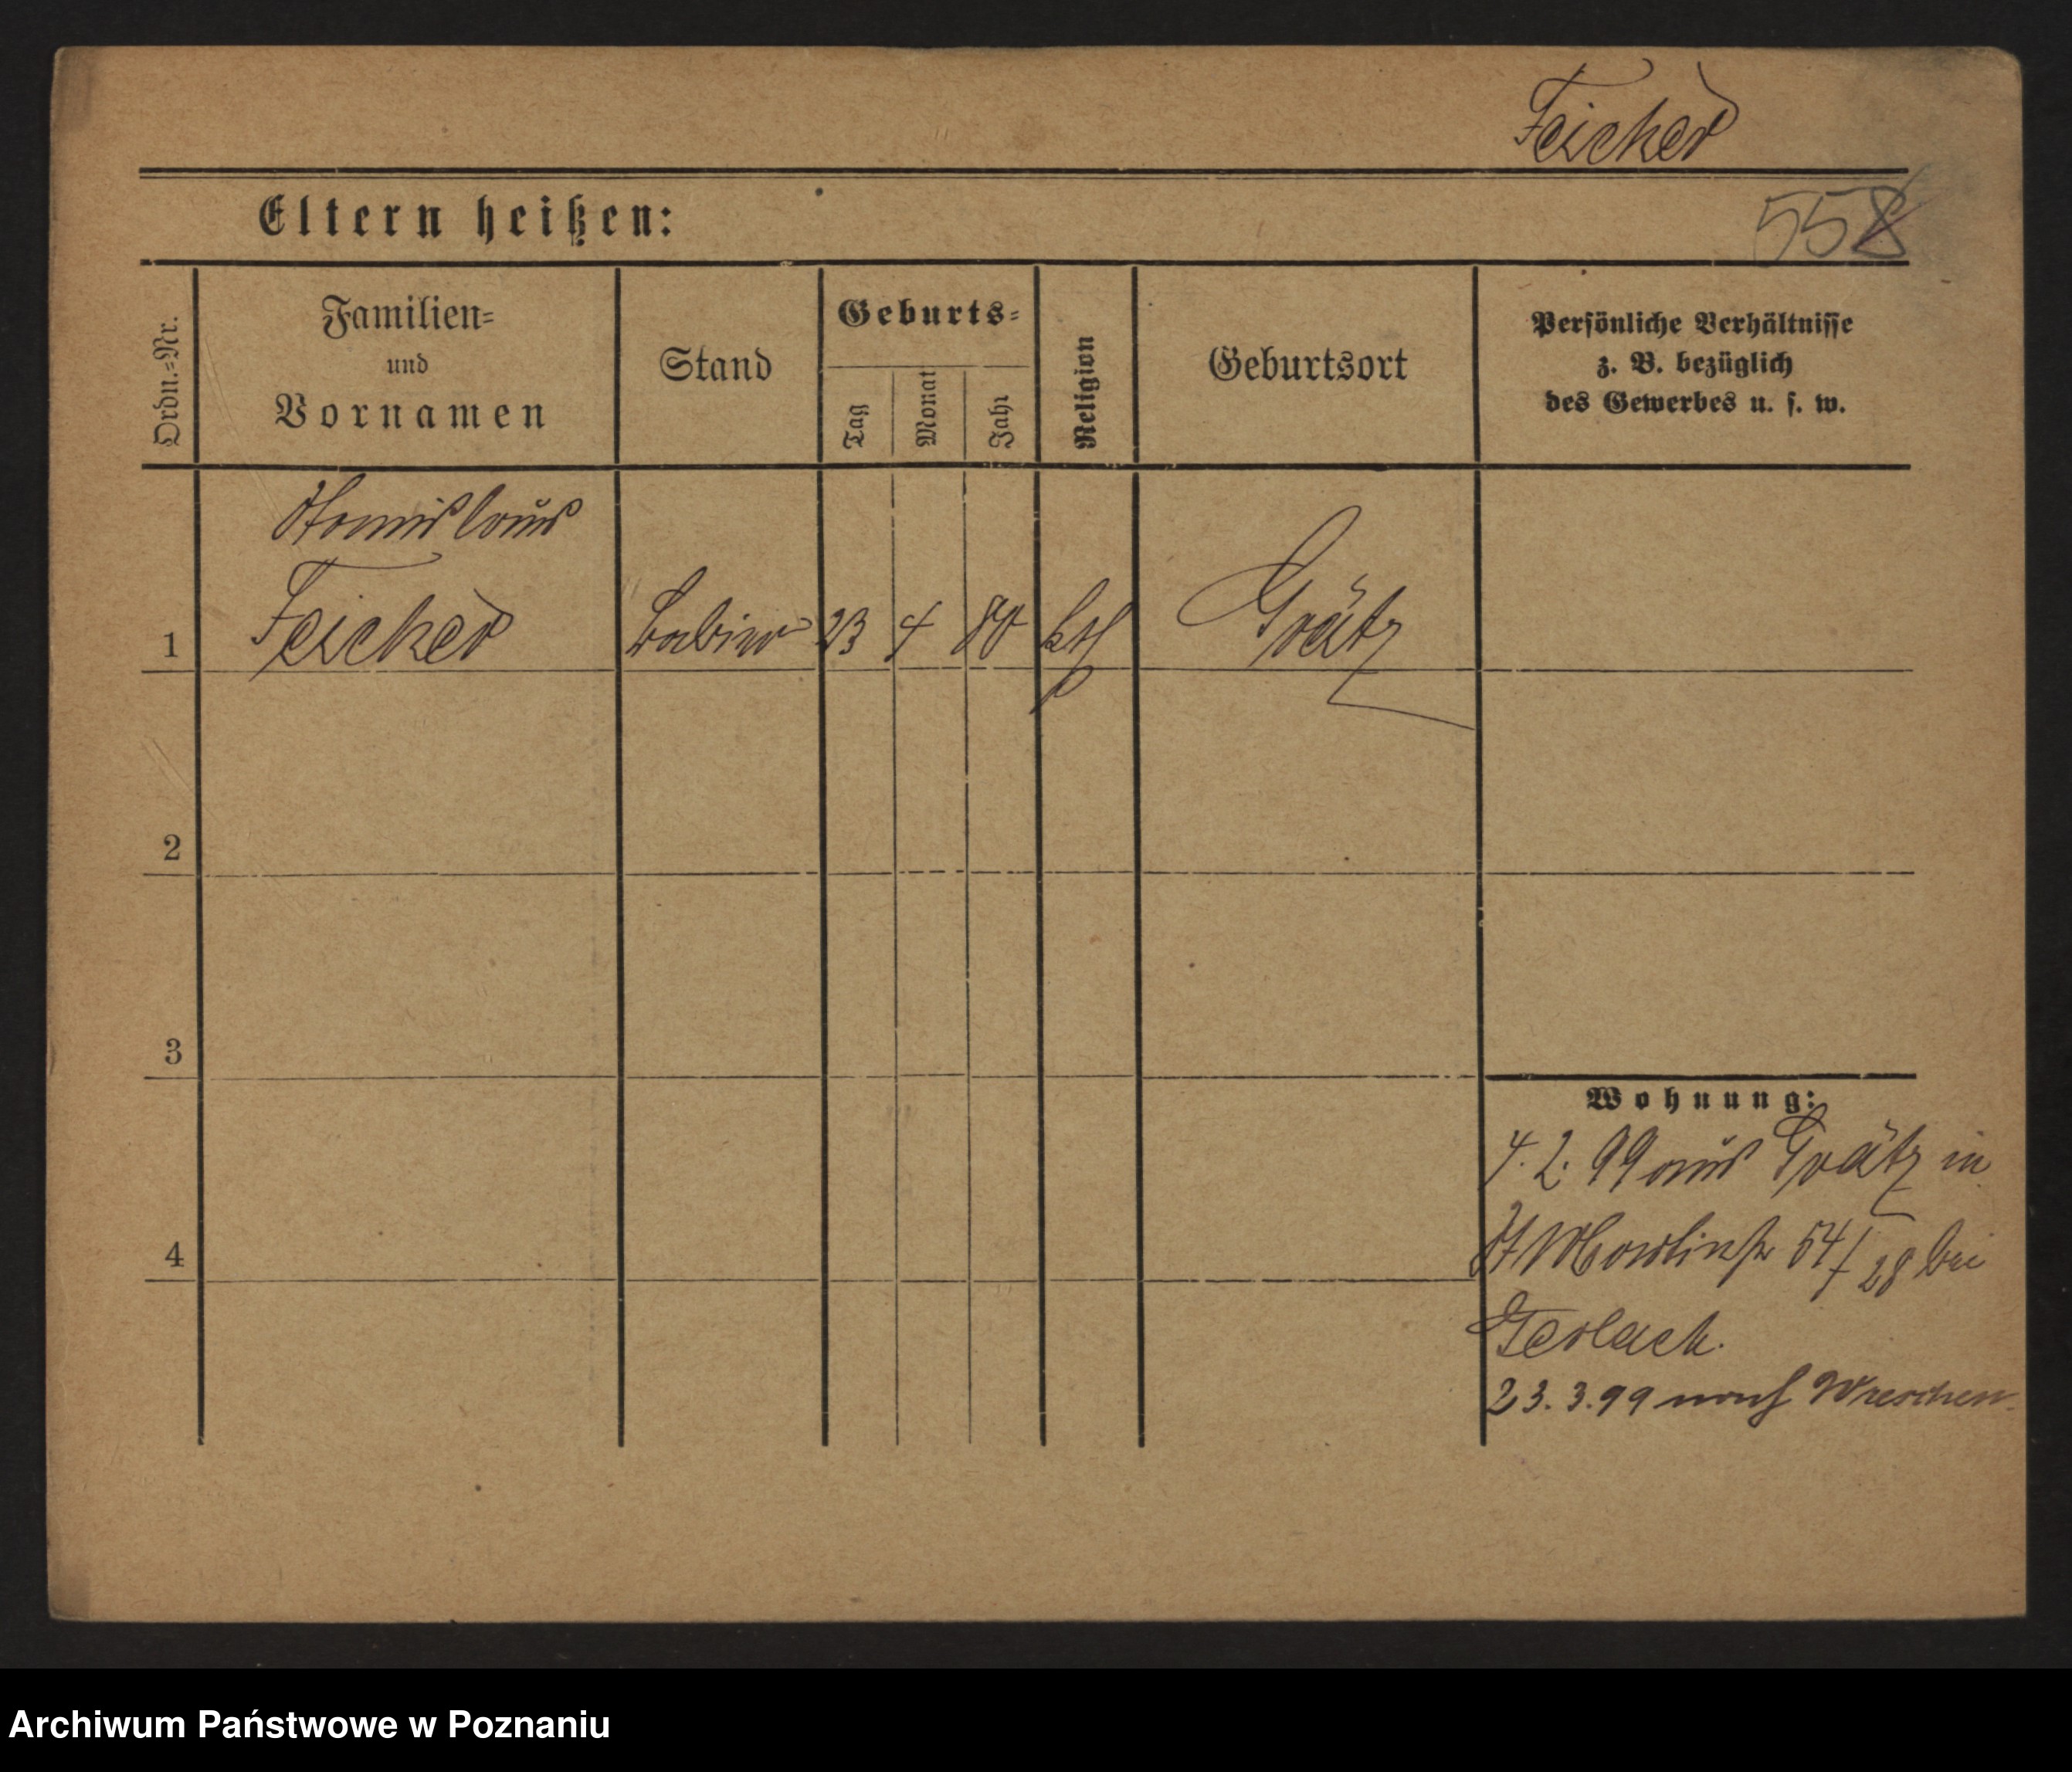 Feicker
Eltern heißen:
558
Ordn.=Nr.
Familien=
und
Vornamen
Stand
Geburts=
Tag
Monat
Jahr
Religion
Geburtsort
Persönliche Verhältnisse
z. B. bezüglich
des Gewerbes u. s. w.
Stanislaus
1 Feicker 23 4 80 kth Grätz
2
3
Wohnung:
4. 2. 99 aus Grätz in
4
St Martinstr 54/28 bei
Gerlach.
23. 3. 99 nach Wreschen.
Archiwum Państwowe w Poznaniu